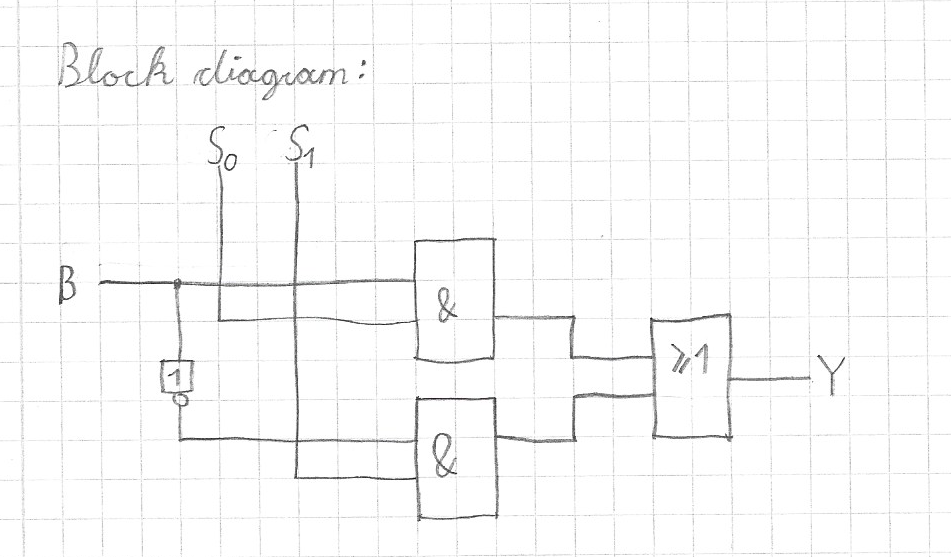 Block diagram:
S0 S1
B
&
1
≥1
Y
&